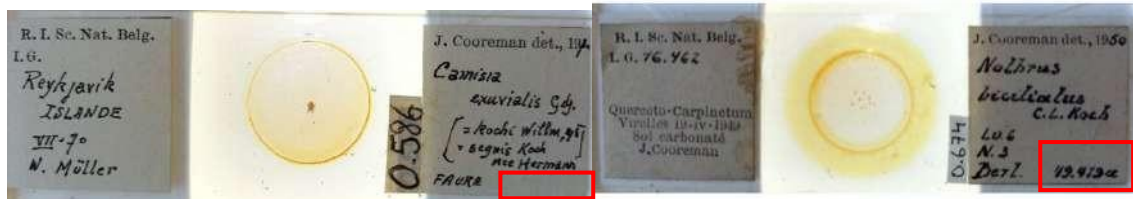 R. I. Sc. Nat. Belg.
I.G.
Reykjavik
ISLANDE
VII-70
W. Müller
0.586
J. Cooreman det., 19
Camisia
exuvialis Gdj.
= Kochi Willm,
= segnis Koch
nec Hermann
FAURE
R. I. Sc. Nat. Belg.
I. G. 76.462
Querceto-Carpinetum
Virelles 19-iv-1949
Sol carbonaté
J. Cooreman
0.674
J. Cooreman det., 1950
Nothrus
biciliatus
C.L. Koch
N.3
Berl.